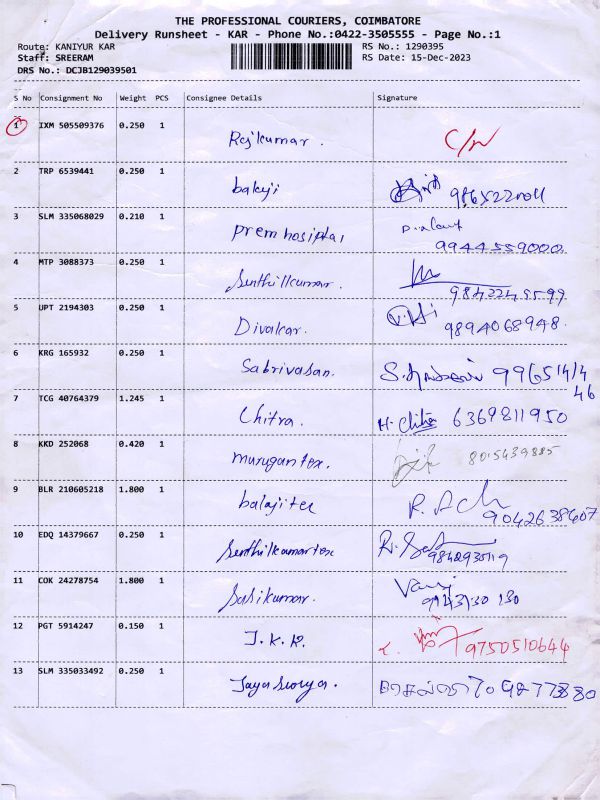 THE PROFESSIONAL COURIERS, COIMBATORE
Delivery Runsheet - KAR - Phone No.:0422-3505555 - Page No.:1
Route: KANIYUR KAR RS No.: 1290395
Staff: SREERAM RS Date: 15-Dec-2023
DRS No.: DCJB129039501
S No Consignment No Weight PCS Consignee Details Signature
1 IXM 505509376 0.250 1 Rajkumar. C/N
2 TRP 6539441 0.250 1 balaji
3 SLM 335068029 0.210 1 prem hosiptal
9944559000.
4 MTP 3088373 0.250 1 Senthilkumar.
5 UPT 2194303 0.250 1 Divakar.
9894068948.
6 KRG 165932 0.250 1 Sabrivasan. 99651414
46
7 TCG 40764379 1.245 1 Chitra. 6369811950
8 KKD 252068 0.420 1 murugantex. 8015439885
9 BLR 210605218 1.800 1 balajitex
9042638607
10 EDQ 14379667 0.250 1 Senthilkumartex
11 COK 24278754 1.800 1 Sasikumar.
12 PGT 5914247 0.150 1 J.K.R. 9750510644
13 SLM 335033492 0.250 1 Jayasurya.